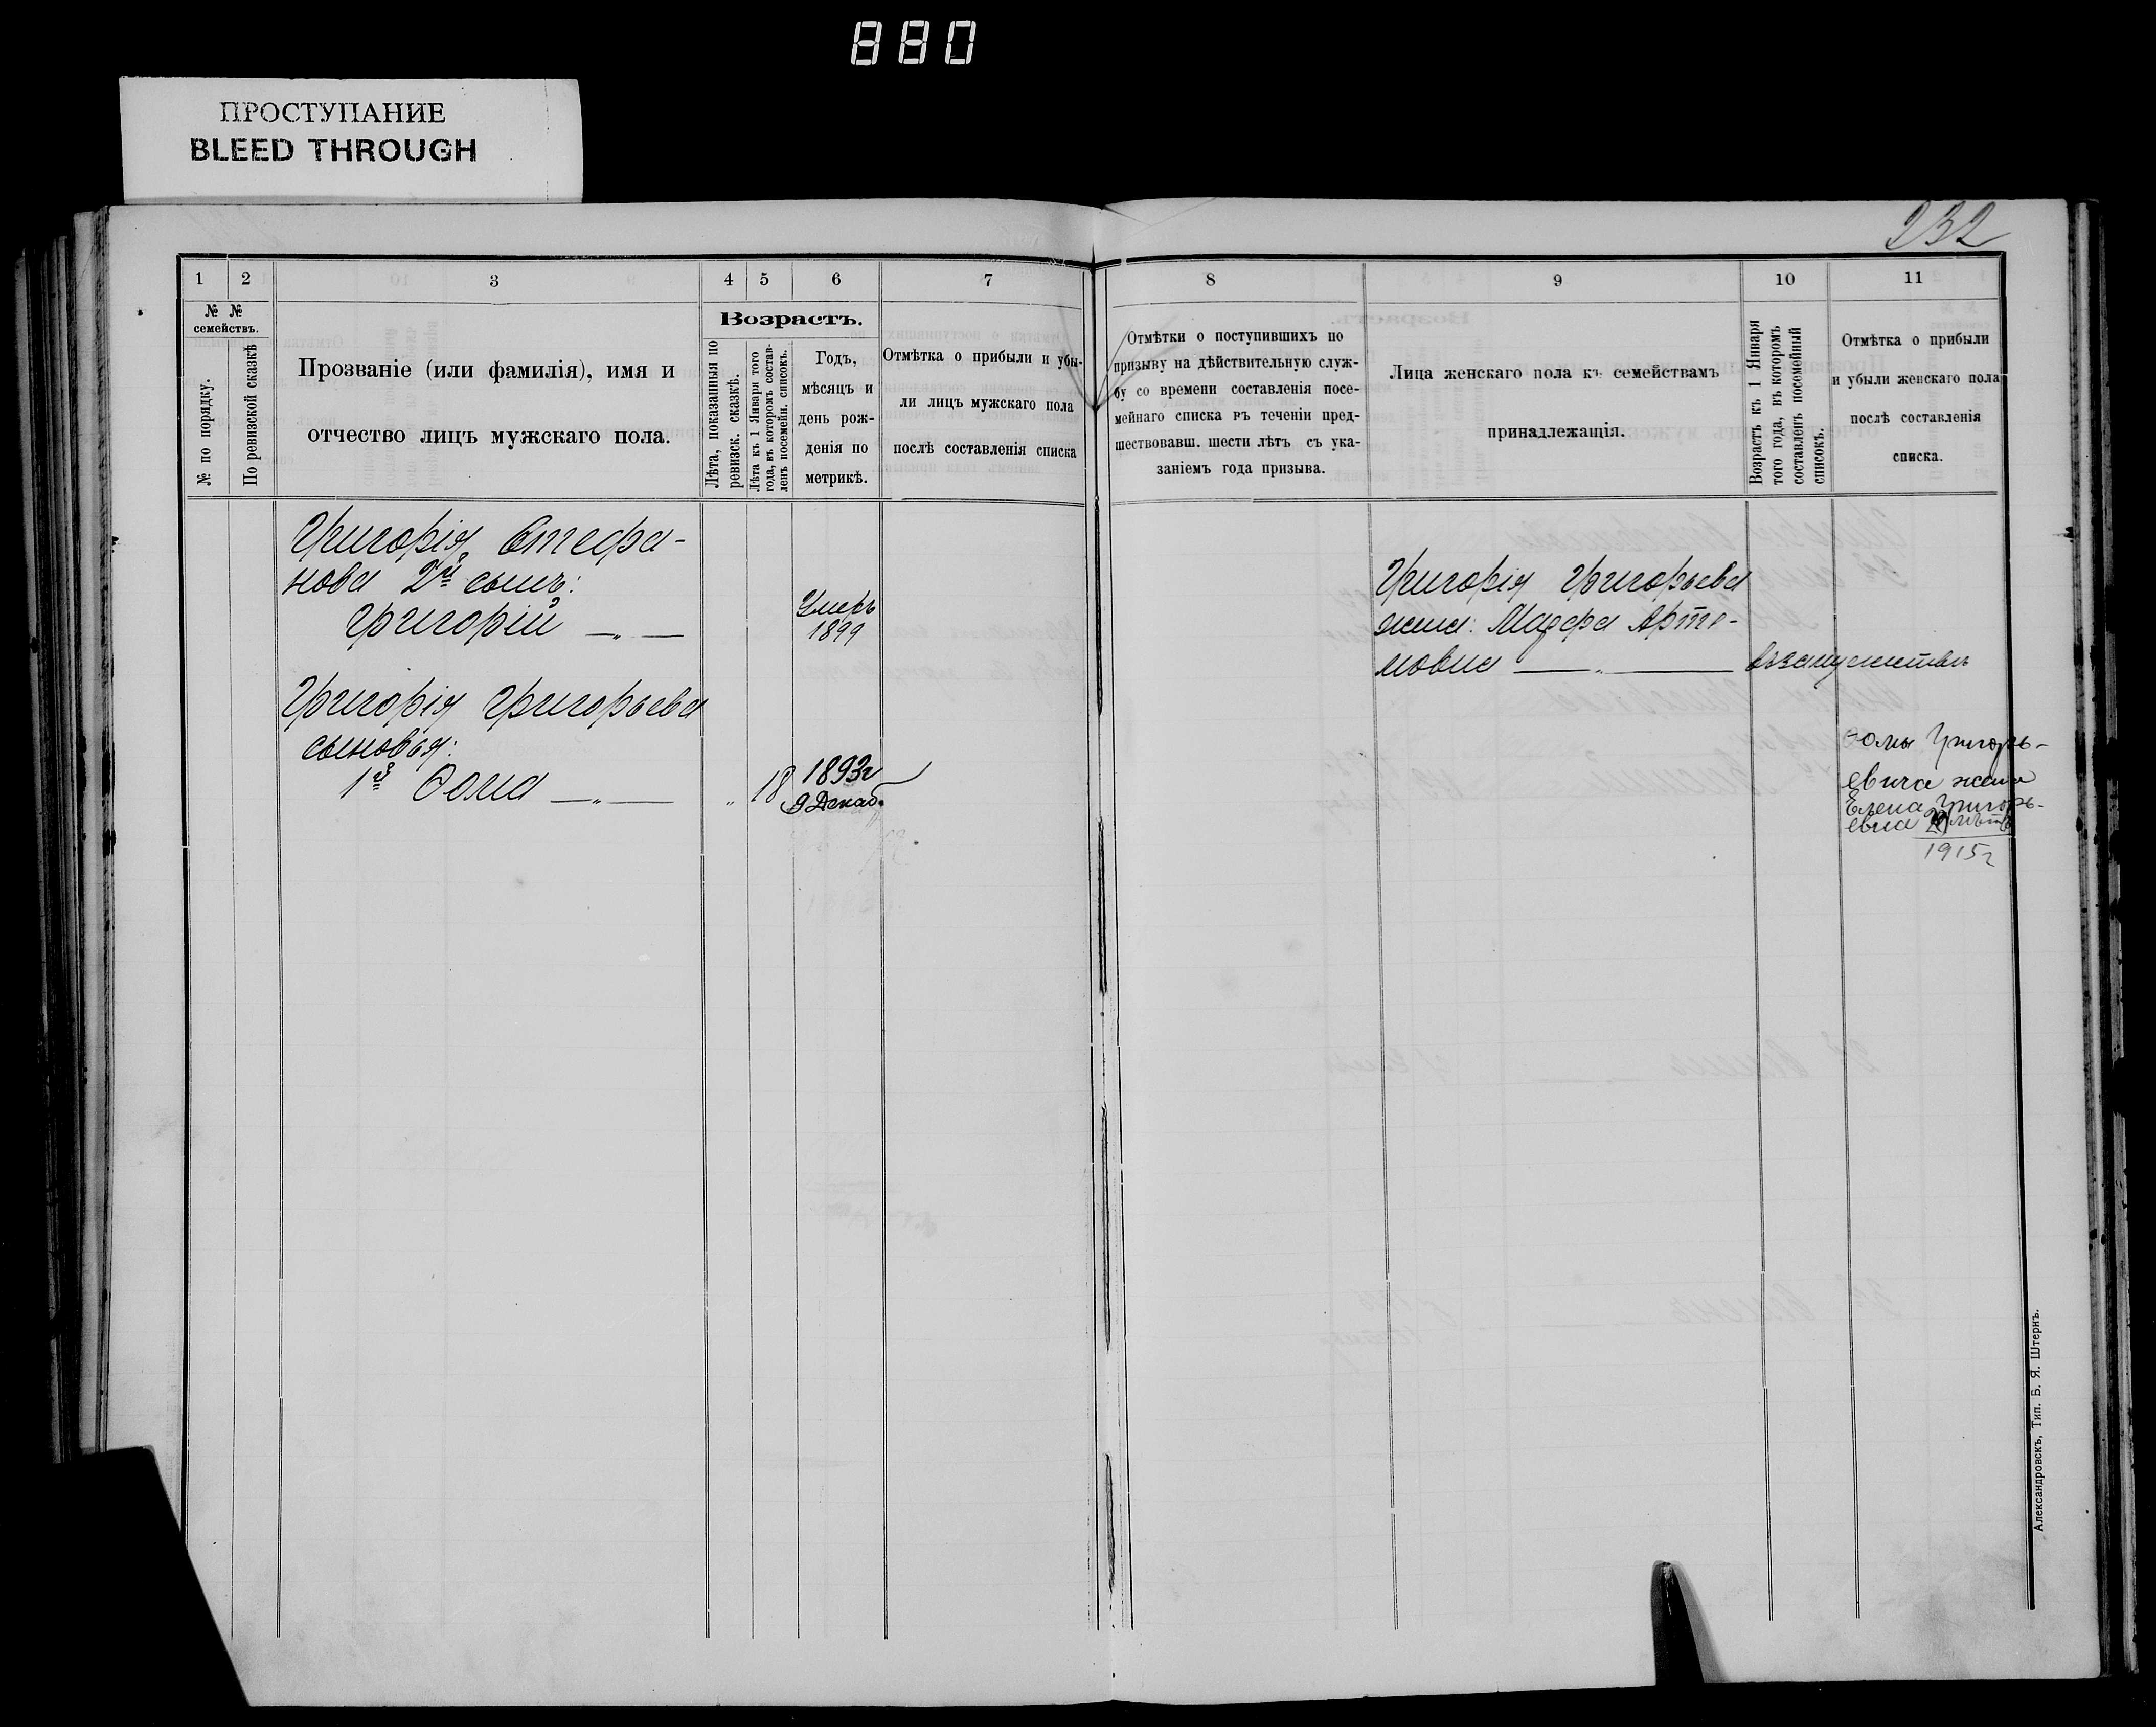 880
ПРОСТУПАНИЕ
BLEED THROUGH
232
1 2 3 4 5 6 7
№ №
семействъ.
№ по порядку.
По ревизской сказкѣ
Прозваніе (или фамилія), имя и
отчество лицъ мужскаго пола.
Возрастъ.
Лѣта, показанныя по
ревизск. сказкѣ.
Лѣта къ 1 Января того
года, въ которомъ состав-
ленъ посемейн. списокъ.
Годъ,
мѣсяцъ и
день рож-
денія по
метрикѣ.
Отмѣтка о прибыли и убы-
ли лицъ мужскаго пола
послѣ составленія списка
Григорія Стефа-
нова 2й сынъ:
Григорій — „ —
Умеръ
1899
Григорія Григорьева
сыновья:
1й Ѳома — „ — „ 18
1893г
9 Декаб.
8 9 10 11
Отмѣтки о поступившихъ по
призыву на дѣйствительную служ-
бу со времени составленія посе-
мейнаго списка въ теченіи пред-
шествовавш. шести лѣтъ съ ука-
заніемъ года призыва.
Лица женскаго пола къ семействамъ
принадлежащія.
Возрастъ къ 1 Января
того года, въ которомъ
составленъ посемейный
списокъ.
Отмѣтка о прибыли
и убыли женскаго пола
послѣ составленія
списка.
Григорія Григорьева
жена: Марфа Арте-
мовна — „ — въ замужествѣ
Ѳомы Григорь-
евича жена
Елена Григорь-
евна лѣтъ
1915г
Александровскъ, Тип. Б. Я. Штернъ.